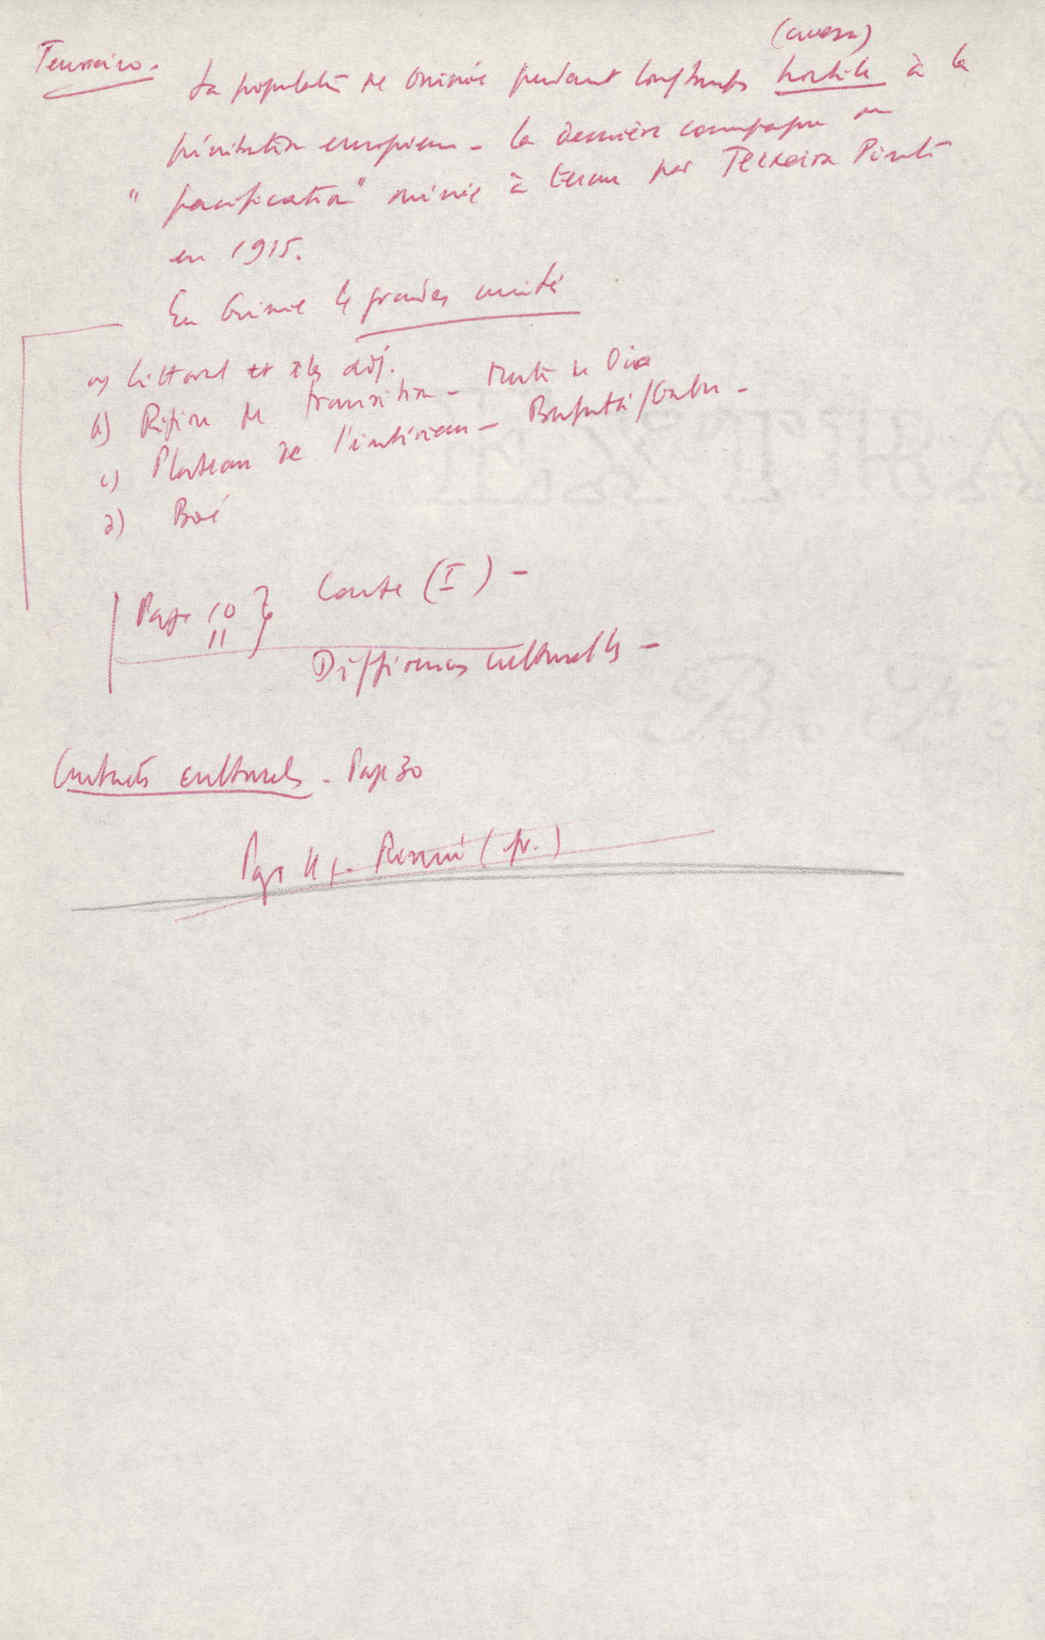 Teixeira.
(avessa)
La population de Guinée pendant longtemps hostile à la
pénétration européenne - la dernière campagne de
"pacification" menée à terme par Teixeira Pinto
en 1915.
En Guinée 4 grandes unités
a) Littoral et îles adj.
b) Région de transition -
c) Plateau de l'intérieur - Bafatá/Gabu -
d) Boé
Page 10
11
Carte (I) -
Différences culturelles -
Contacts culturels - Page 30
Page Résumé (fr.)